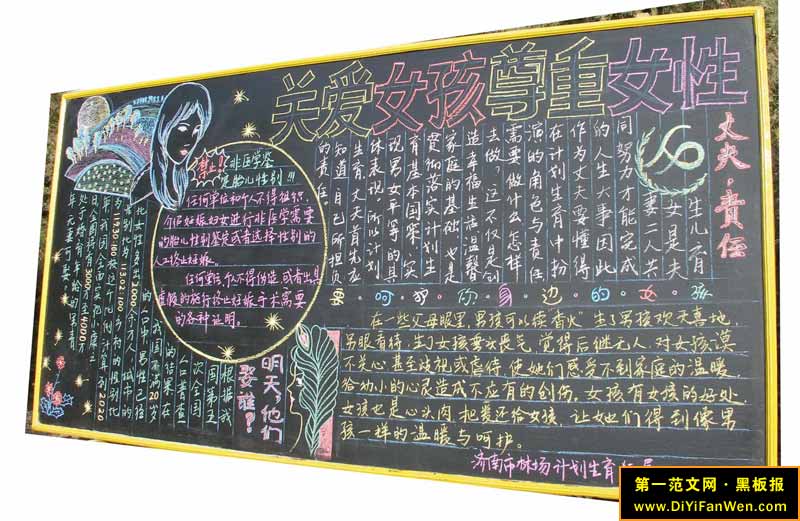 关爱女孩尊重女性
丈夫·责任
生儿育
女是夫
妻二人共
同努力才能完成
的人生大事因此
作为丈夫要懂得
在计划生育中扮
演的角色与责任
需要做什么怎样
去做，这不仅是创
造幸福生活温馨
家庭的基础也是
贯彻落实计划生
育基本国策，实
现男女平等的具
体表现，所以计划
生育，丈夫首先应
知道，自己所担负
的责任。
禁止!! 非医学鉴
定胎儿性别!!!
任何单位和个人不得组织、
介绍妊娠妇女进行非医学需要
的胎儿性别鉴定或者选择性别的
人工终止妊娠。
任何单位、个人不得伪造、或者出具
虚假的施行终止妊娠手术需要
的各种证明。
要·呵·护·你·身·边·的·女·孩
在一些父母眼里，男孩可以续"香火"生了男孩欢天喜地，
另眼看待，生了女孩垂头丧气，觉得后继无人，对女孩漠
不关心甚至歧视或虐待，使她们感受不到家庭的温暖，
给幼小的心灵造成不应有的创伤，女孩有女孩的好处，
女孩也是心头肉，把爱还给女孩，让她们得到像男
孩一样的温暖与呵护。
济南市林场计划生育
明天，他们
娶谁？
根据我
国第五
次全国
人口普查
的结果在
我国不满20岁
的人口中，男性已经
比女性多出2000余万人，城市的
性别比为113.02:100，乡村的性别比
为119.30:100，按这个比例计算，到2020
年，我国
日，全国将有3000万至4000万
处于婚育年龄的男青
年无妻可娶。
第一范文网·黑板报
www.DiYiFanWen.com